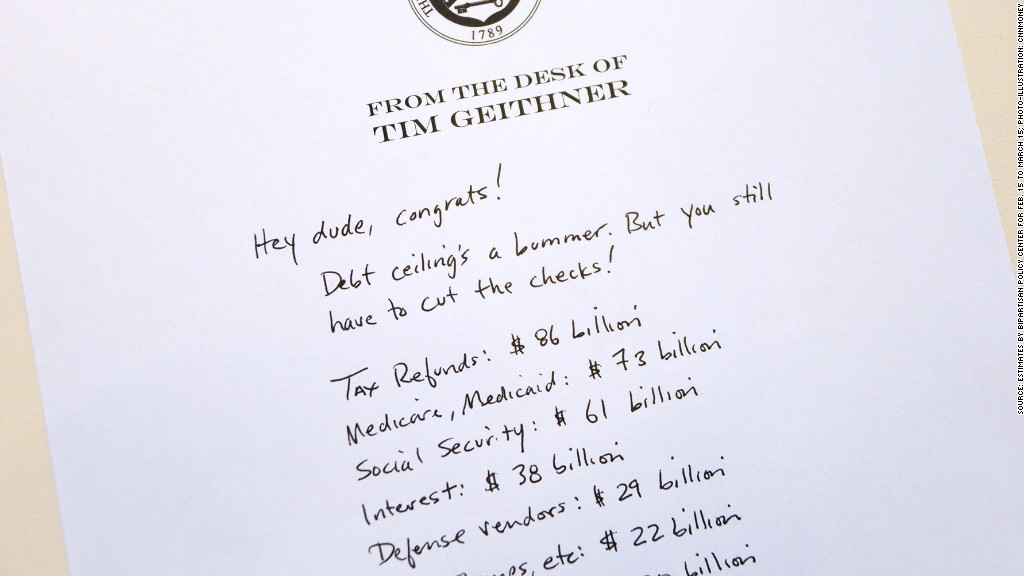 1789
FROM THE DESK OF
TIM GEITHNER
Hey dude, congrats!
Debt ceiling's a bummer. But you still
have to cut the checks!
Tax Refunds: $ 86 billion
Medicare, Medicaid: $ 73 billion
Social Security: $ 61 billion
Interest: $ 38 billion
Defense vendors: $ 29 billion
etc: $ 22 billion
billion
SOURCE: ESTIMATES BY BIPARTISAN POLICY CENTER FOR FEB. 15 TO MARCH 15; PHOTO-ILLUSTRATION: CNNMONEY